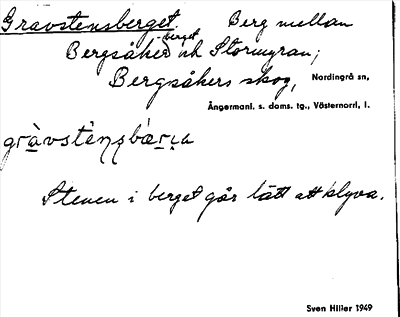 Gravstensberget. Berg mellan
-berget
Bergsåker och Stormyran;
Bergsåkers skog, Nordingrå sn,
Ångermanl. s. doms. tg., Västernorrl. l.
Stenen i berget går lätt att klyva.
Sven Hiller 1949